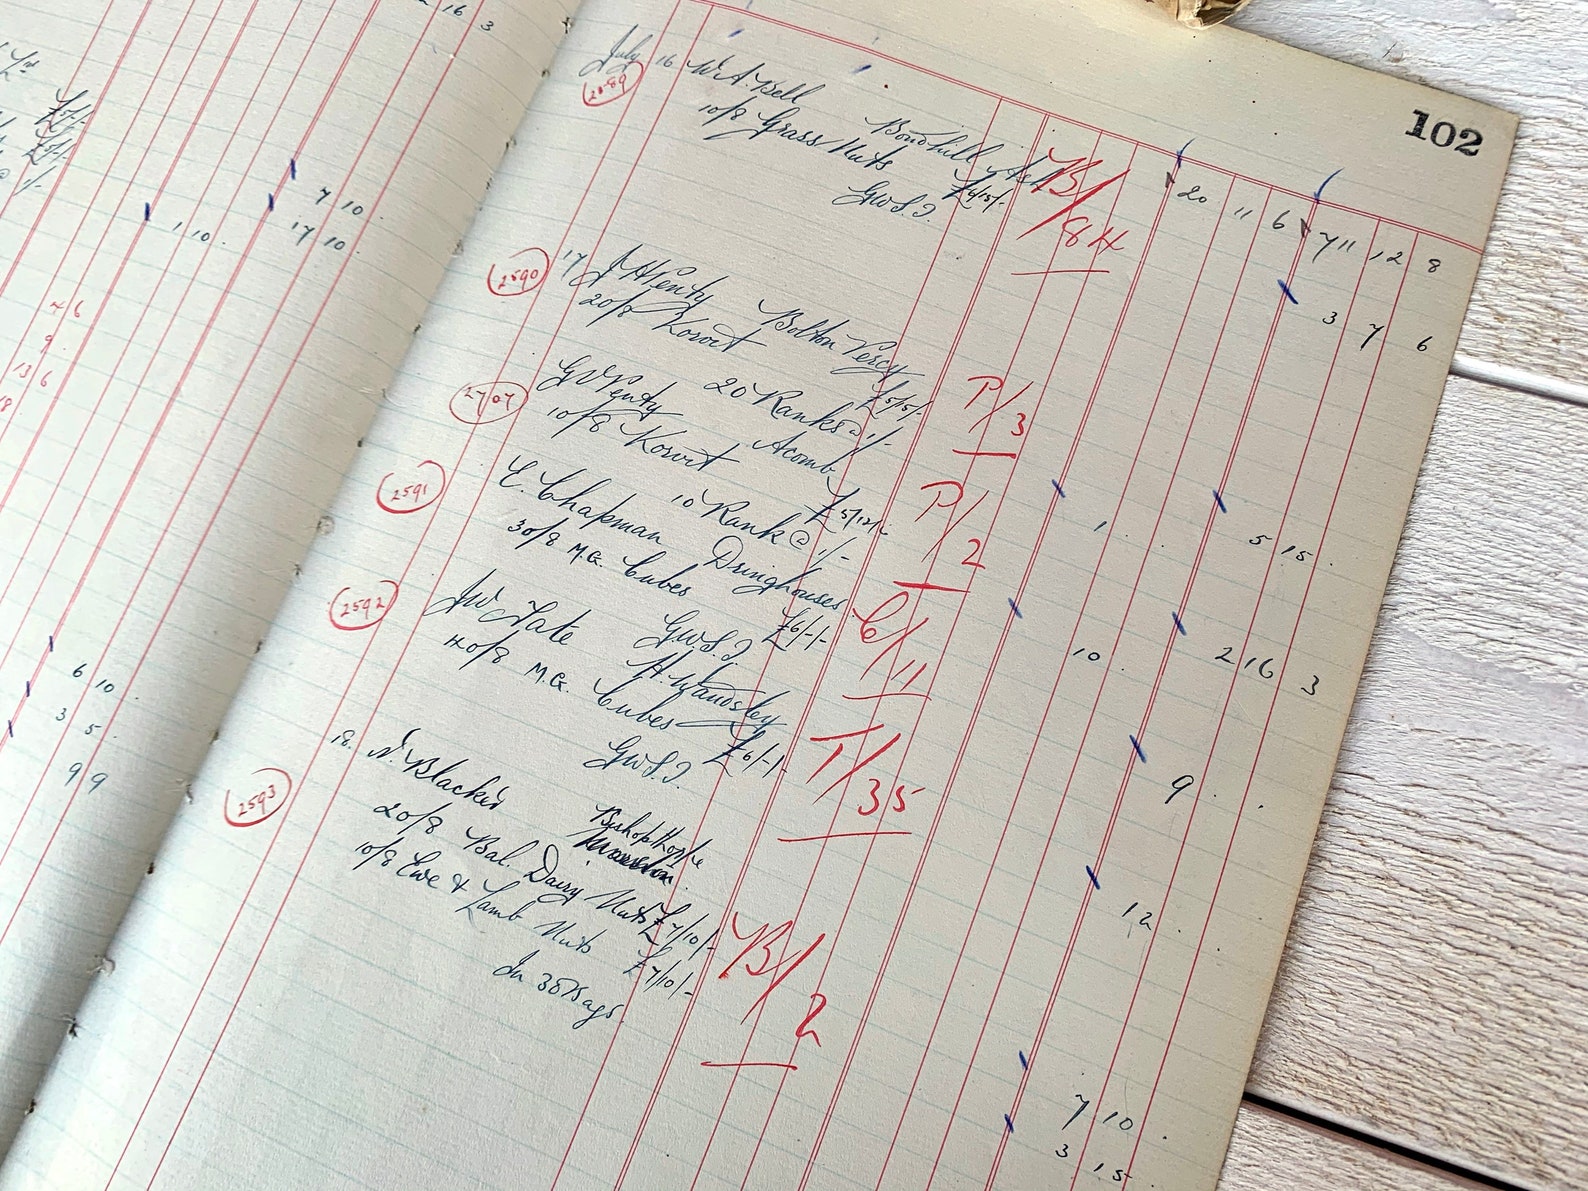 16 3
£5/-
1/-
7 10
1 10.
17 10.
4 6
9.
13 6
6 10
3 5.
9 9
102
July 16 W.A. Bell
2589
Bondhill Ash
10/8 Grass Nuts £4/15/-
B/84
20 11 6
711 12 8
2590
17 J H Penty Bolton Percy
20/8 Korvit £5/5/-
P/3
3 7 6
20 Ranks @ 1/-
2707
G W Penty Acomb
10/8 Korvit £5/12/-
P/2
1 . .
5 15 .
10 Rank @ 1/-
2591
E. Chapman Dringhouses
30/8 M.G. Cubes £6/-/-
C/11
10 .
2 16 3
2592
JW Tate H. Wandsley
40/8 M.G. Cubes £6/-/-
T/35
9 . .
12 . .
18. N. Blacker Bishopthorpe
2593
20/8 Bal. Dairy Nuts £7/10/-
10/8 Ewe & Lamb Nuts £7/10/-
B/2
In 30 Bags.
7 10 .
3 15 .